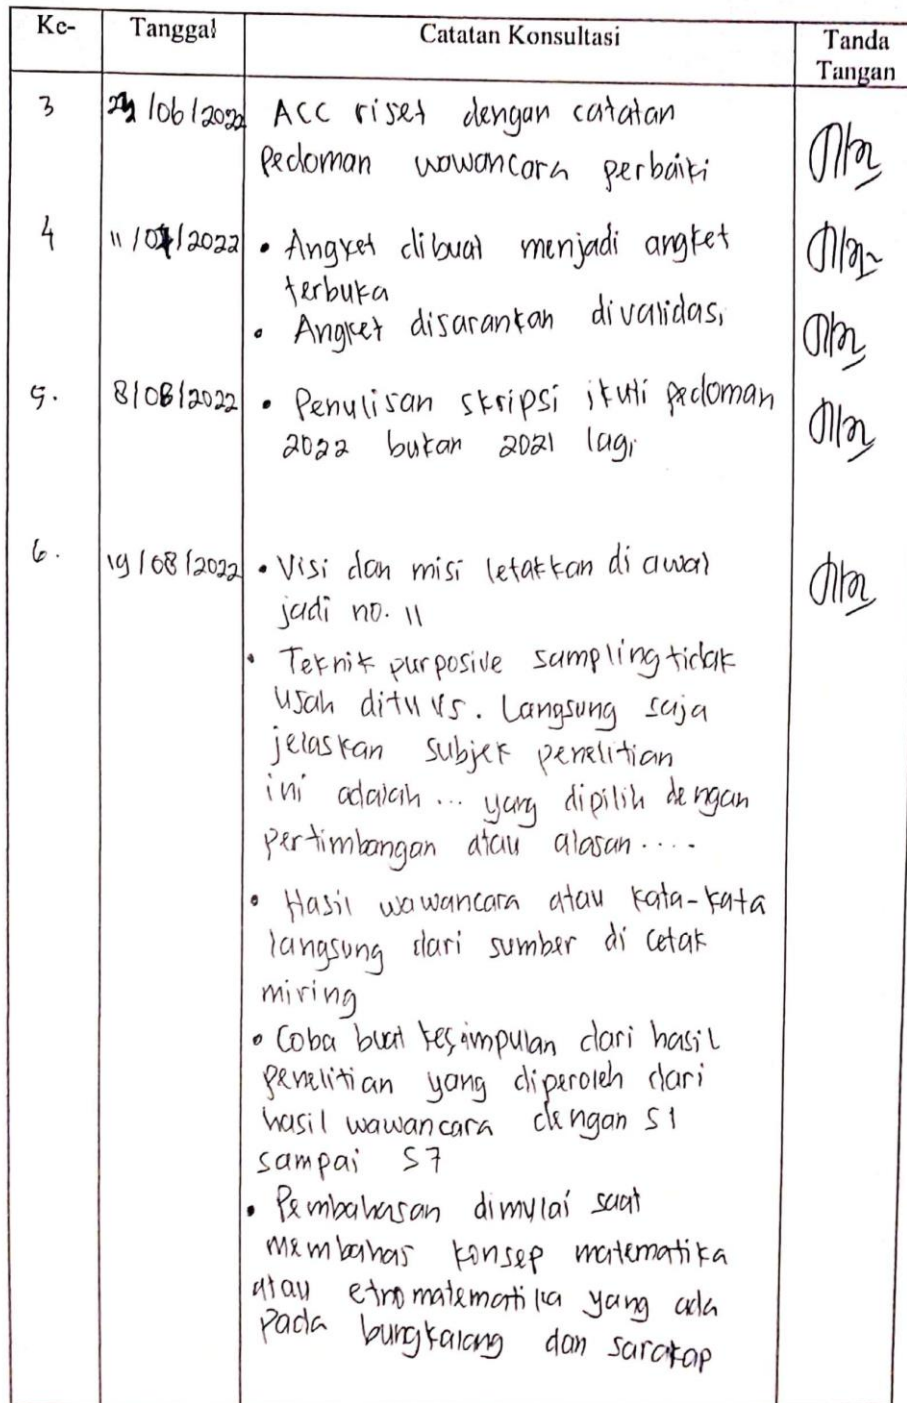 Ke- Tanggal Catatan Konsultasi Tanda
Tangan
3 /06/2022 ACC riset dengan catatan
pedoman wawancara perbaiki
4 11/07/2022 • Angket dibuat menjadi angket
terbuka
• Angket disarankan divalidasi
5. 8/08/2022 • Penulisan skripsi ikuti pedoman
2022 bukan 2021 lagi
6. 19/08/2022 • Visi dan misi letakkan di awal
jadi no. 11
• Teknik purposive sampling tidak
usah ditulis. Langsung saja
jelaskan subjek penelitian
ini adalah ... yang dipilih dengan
pertimbangan atau alasan ....
• Hasil wawancara atau kata-kata
langsung dari sumber di cetak
miring
• Coba buat kesimpulan dari hasil
penelitian yang diperoleh dari
hasil wawancara dengan S1
sampai S7
• Pembahasan dimulai saat
membahas konsep matematika
atau etnomatematika yang ada
pada bungkalang dan sarakap